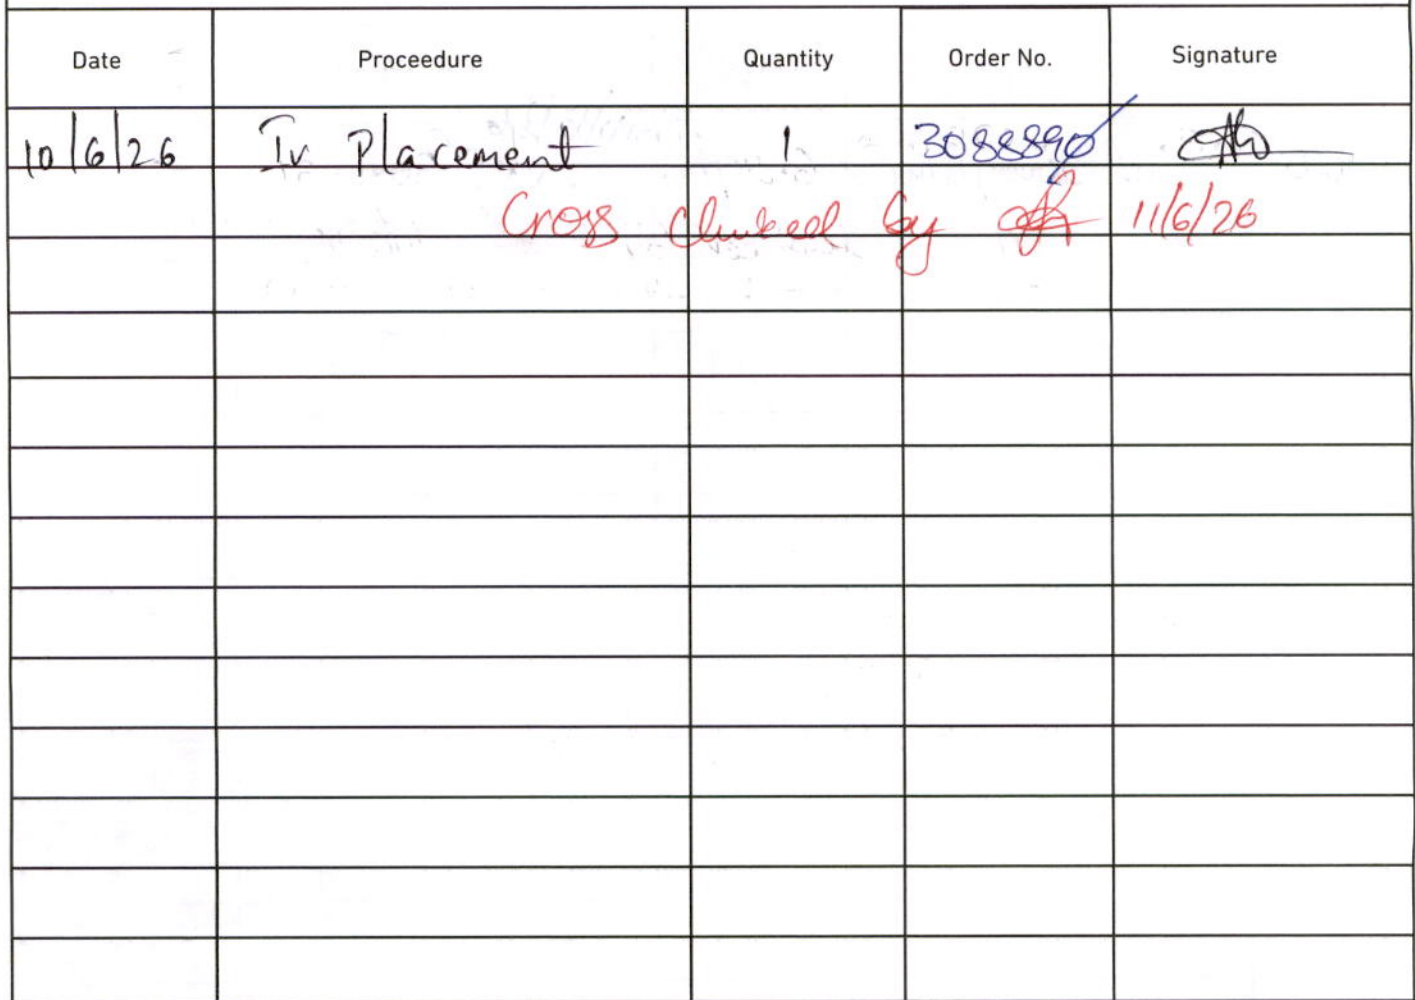 Date Proceedure Quantity Order No. Signature
10/6/26 Iv Placement 1 3088890
Cross cheked by 11/6/26